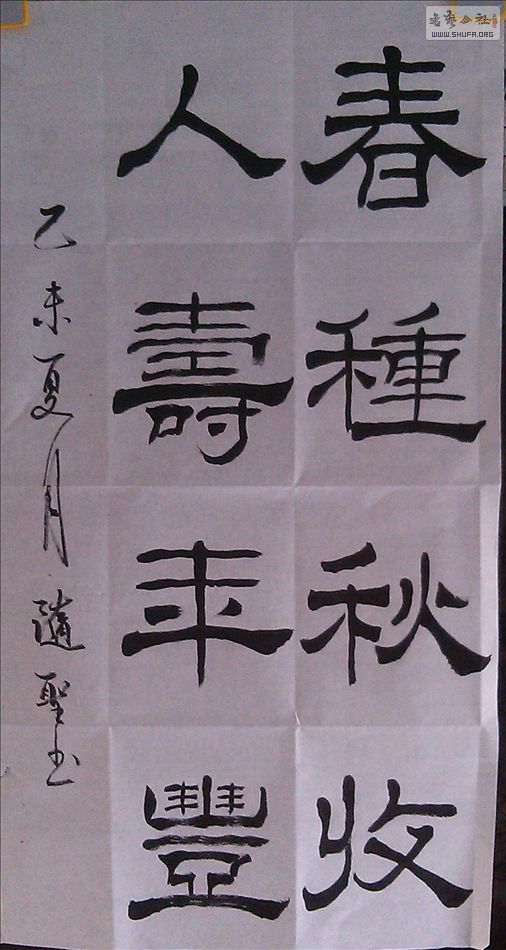 春種秋收
人壽年豐
乙未夏月隨聖书
书藝公社
WWW.SHUFA.ORG